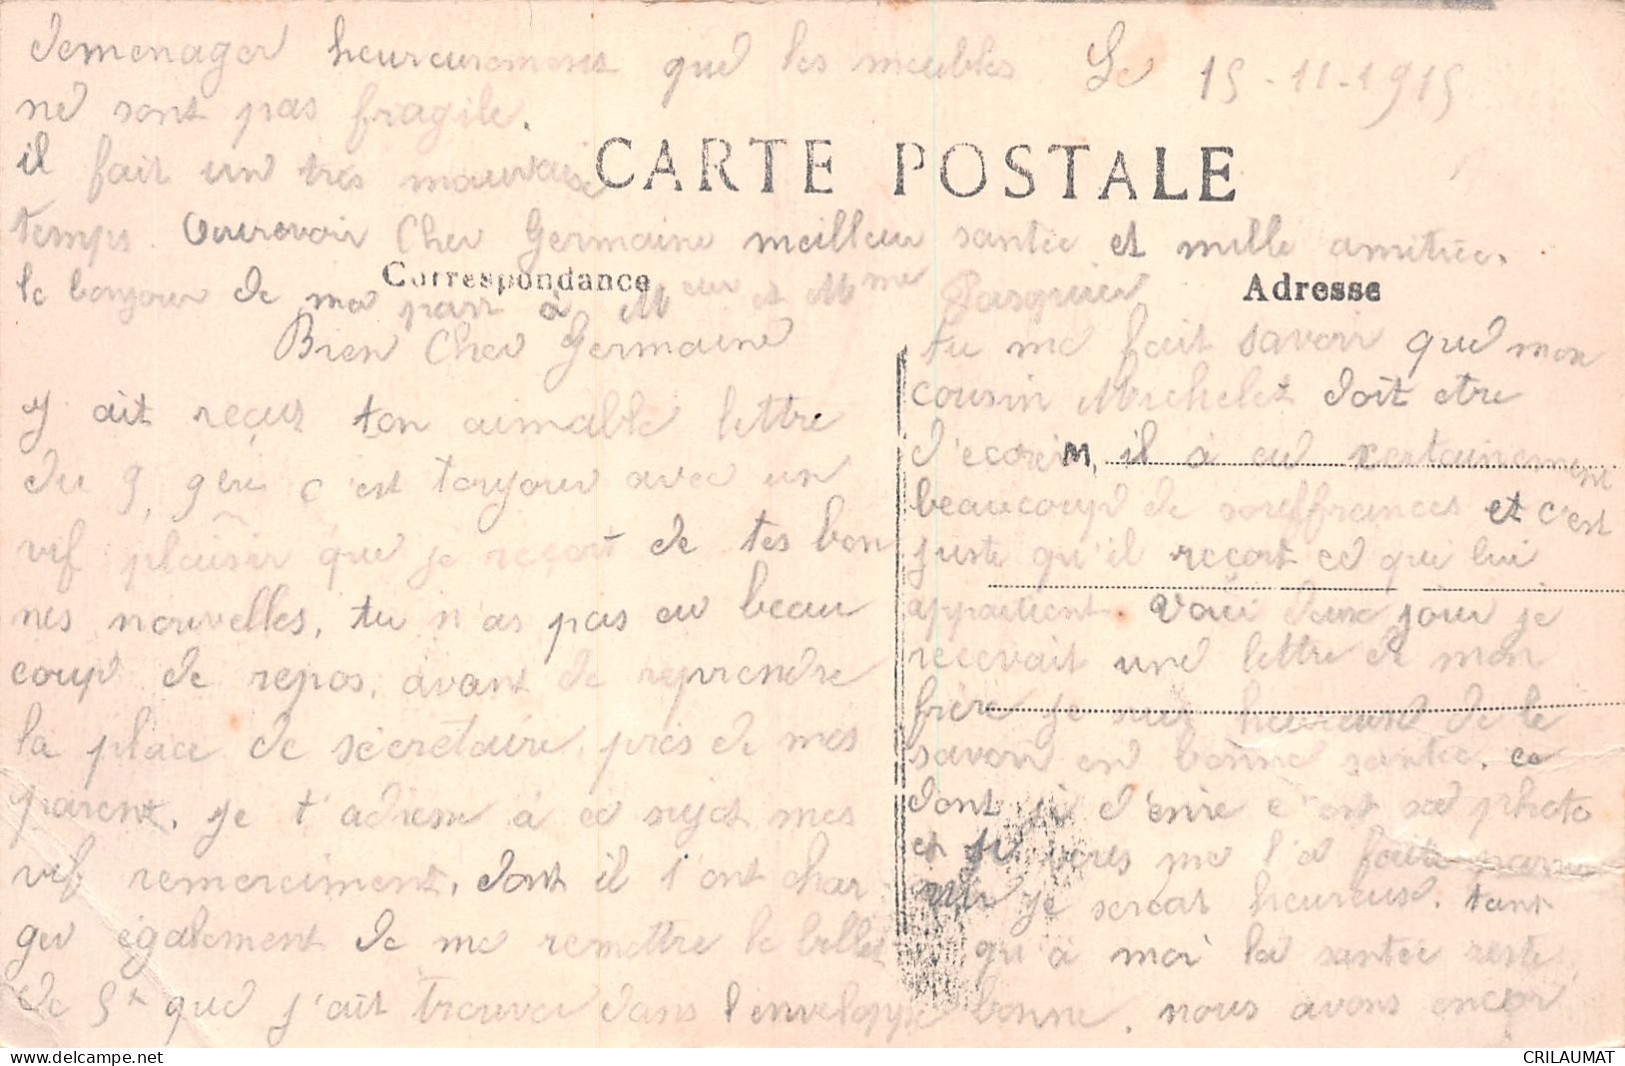 Le 15-11-1915
CARTE POSTALE
Correspondance
Adresse
Bien Cher Germaine
j' ait reçus ton aimable lettre
du 9, c'est toujour avec un
vif plaîsir que je reçoit de tes bon
nes nouvelles, tu n'as pas eu beau
coup de repos, avant de reprendre
la place de sécretaire, près de mes
parent, je t'adresse à ce sujet mes
vif remerciment, dont il l'ont char
ger également de me remettre le billet
de 5f que j'ait trouver dans l'enveloppe
tu me fait savoir que mon
cousin Michelet doît etre
d'ecorer M, il à eu certainement
beaucoup de souffrances et c'est
juste qu'il reçoit ce qui lui
appartient. Voici deux jour je
recevait une lettre de mon
frère je suis heureuse de le
savoir en bonne santée, ce
dont j'ai d'envie c'est sa photo
et si tu me l'a faite parve
nir je serait heureuse, tant
qu'à moi la santée reste
bonne, nous avons encor
demenager heureurement que les meubles
ne sont pas fragile.
il fait un très mauvaise
temps. Ourevoir Cher Germaine meilleur santée et mille amitiée.
le bonjour de ma part à Meur et Mme Pasquier
CRILAUMAT